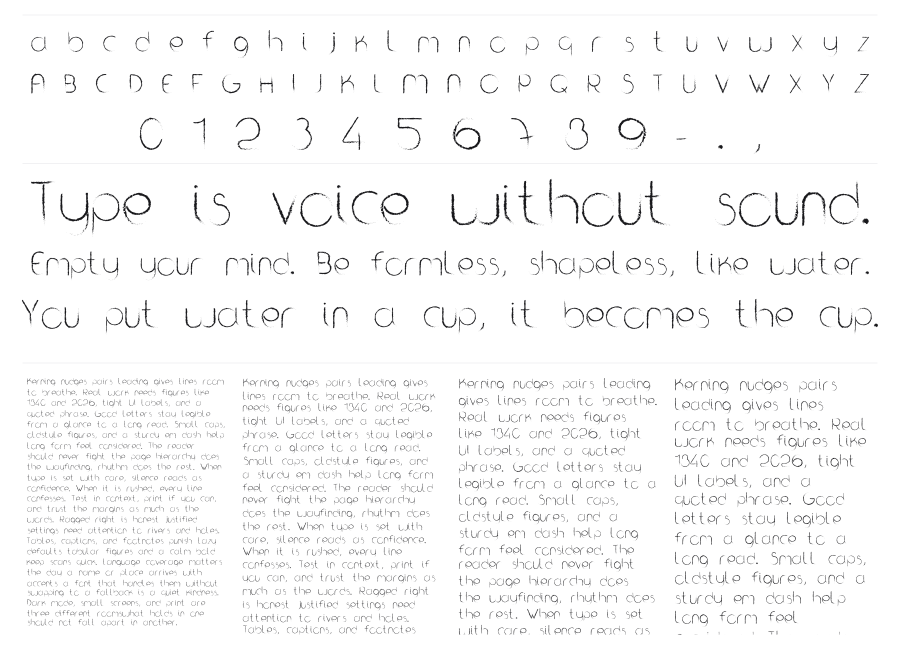 a b c d e f g h i j k l m n o p q r s t u v w x y z
A B C D E F G H I J K L M N O P Q R S T U V W X Y Z
0 1 2 3 4 5 6 7 8 9 - . ,
Type is voice without sound.
Empty your mind. Be formless, shapeless, like water.
You put water in a cup, it becomes the cup.
Kerning nudges pairs leading gives lines room
to breathe. Real work needs figures like
1940 and 2026, tight UI labels, and a
quoted phrase. Good letters stay legible
from a glance to a long read. Small caps,
oldstyle figures, and a sturdy em dash help
long form feel considered. The reader
should never fight the page hierarchy does
the wayfinding, rhythm does the rest. When
type is set with care, silence reads as
confidence. When it is rushed, every line
confesses. Test in context, print if you can,
and trust the margins as much as the
words. Ragged right is honest Justified
settings need attention to rivers and holes.
Tables, captions, and footnotes punish lazy
defaults tabular figures and a calm bold
keep scans quick. Language coverage matters
the day a name or place arrives with
accents a font that handles them without
swapping to a fallback is a quiet kindness.
Dark mode, small screens, and print are
three different roomswhat holds in one
should not fall apart in another.
Kerning nudges pairs leading gives
lines room to breathe. Real work
needs figures like 1940 and 2026,
tight UI labels, and a quoted
phrase. Good letters stay legible
from a glance to a long read.
Small caps, oldstyle figures, and
a sturdy em dash help long form
feel considered. The reader should
never fight the page hierarchy
does the wayfinding, rhythm does
the rest. When type is set with
care, silence reads as confidence.
When it is rushed, every line
confesses. Test in context, print if
you can, and trust the margins as
much as the words. Ragged right
is honest Justified settings need
attention to rivers and holes.
Tables, captions, and footnotes
Kerning nudges pairs leading
gives lines room to breathe.
Real work needs figures
like 1940 and 2026, tight
UI labels, and a quoted
phrase. Good letters stay
legible from a glance to a
long read. Small caps,
oldstyle figures, and a
sturdy em dash help long
form feel considered. The
reader should never fight
the page hierarchy does
the wayfinding, rhythm does
the rest. When type is set
with care, silence reads as
Kerning nudges pairs
leading gives lines
room to breathe. Real
work needs figures like
1940 and 2026, tight
UI labels, and a
quoted phrase. Good
letters stay legible
from a glance to a
long read. Small caps,
oldstyle figures, and a
sturdy em dash help
long form feel